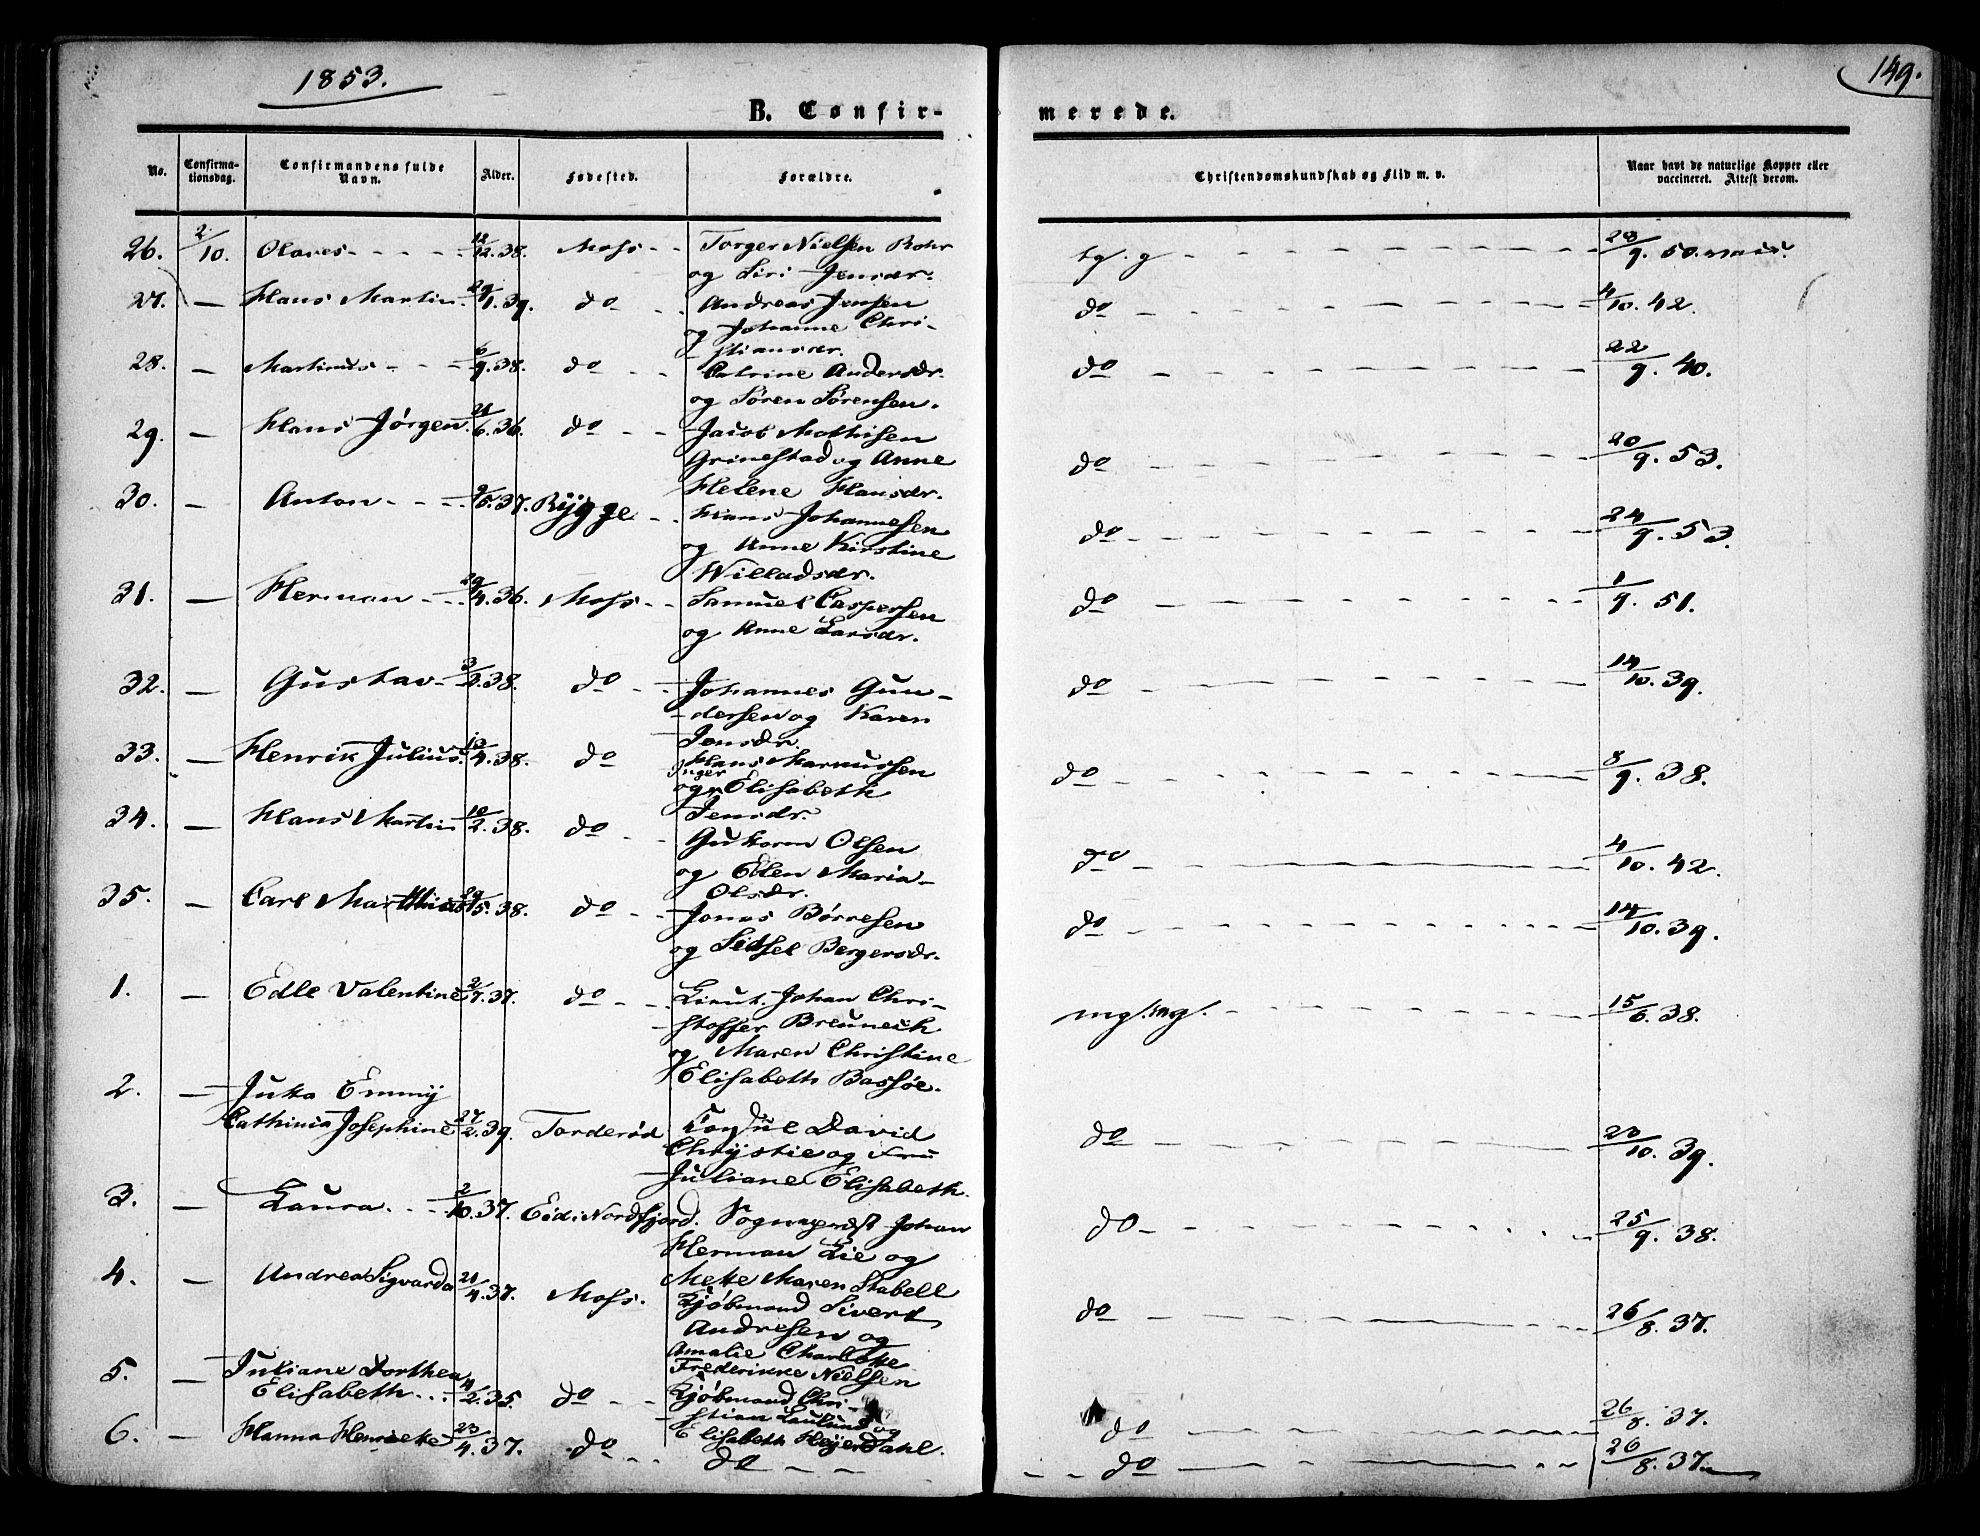 1853.
149.
B. Confir-
merede.
No.
Confirma-
tionsdag.
Confirmandens fulde
Navn.
Alder.
Fødested.
Forældre.
Christendomskundskab og Flid m. v.
Naar havt de naturlige Kopper eller
vaccineret. Attest derom.
26. 2/10. Olaves - - - - 12/12.38. Moss - - Torger Nielsen Rohr tg. g - - - 28/9. 50.
og Siri Jensdr.
27. — Hans Martin 29/1.39. do - - Andreas Jensen do - - - 4/10. 42.
og Johanne Chri-
stiansdr.
28. — Martinus - - - 6/9.38. do - - Catrine Andersdr. do - - - 22/9. 40.
og Søren Sørensen.
29. — Hans Jørgen 21/6.36. do - - Jacob Mathisen do - - - 20/9. 53.
Grinestad og Anne
Helene Hansdr.
30. — Anton - - - 9/5.37. Rygge - - Hans Johannesen do - - - 24/9. 53.
og Anne Kirstine
Willadsdr.
31. — Herman - - - 29/4.36. Moss - - Samuel Caspersen do - - - 1/9. 51.
og Anne Larsdr.
32. — Gustav - 3/2.38. do - - Johannes Gun- do - - - 14/10. 39.
dersen og Karen
Jensdr.
33. — Henrik Julius 13/4.38. do Hans Marnussen do - - - 8/9. 38.
og Inger Elisabeth
Jensdr.
34. — Hans Martin 10/2.38. do - - Guttorm Olsen do - - - 4/10. 42.
og Ellen Maria
Olsdr.
35. Carl Matthias 29/5.38. do - - Jonas Børresen do - - - 14/10. 39.
og Sidsel Bergersdr.
1. — Edle Valentine 2/7.37. do - - Lieut. Johan Chri- mg. mg. - - - 15/6. 38.
stoffer Breuneich
og Maren Christine
Elisabeth Bassøe.
2. — Jutta Emmy
Cathinia Josephine 27/2.39. Torderød David do - - - 23/10. 39.
Chrystie og Fru
Juliane Elisabeth.
3. — Laura. - - 2/10.37. Eid i Nordfjord. Sogneprest Johan do - - - 25/9. 38.
Herman Lie og
Mette Maren Stabell
4. — Andrea Sigvarda 21/4.37. Moss. Kjøbmand Sivert do - - - 26/8. 37.
Andresen og
Amalie Charlotte
Frederikke Nielsen
5. — Juliane Dorthea
Elisabeth - - - 4/2.35. do - - Kjøbmand Chri- do - - - 26/8. 37.
stian Laulund og
Elisabeth Heyerdahl.
6. — Hanna 23/4.37. do - - do - - do - - - 26/8. 37.